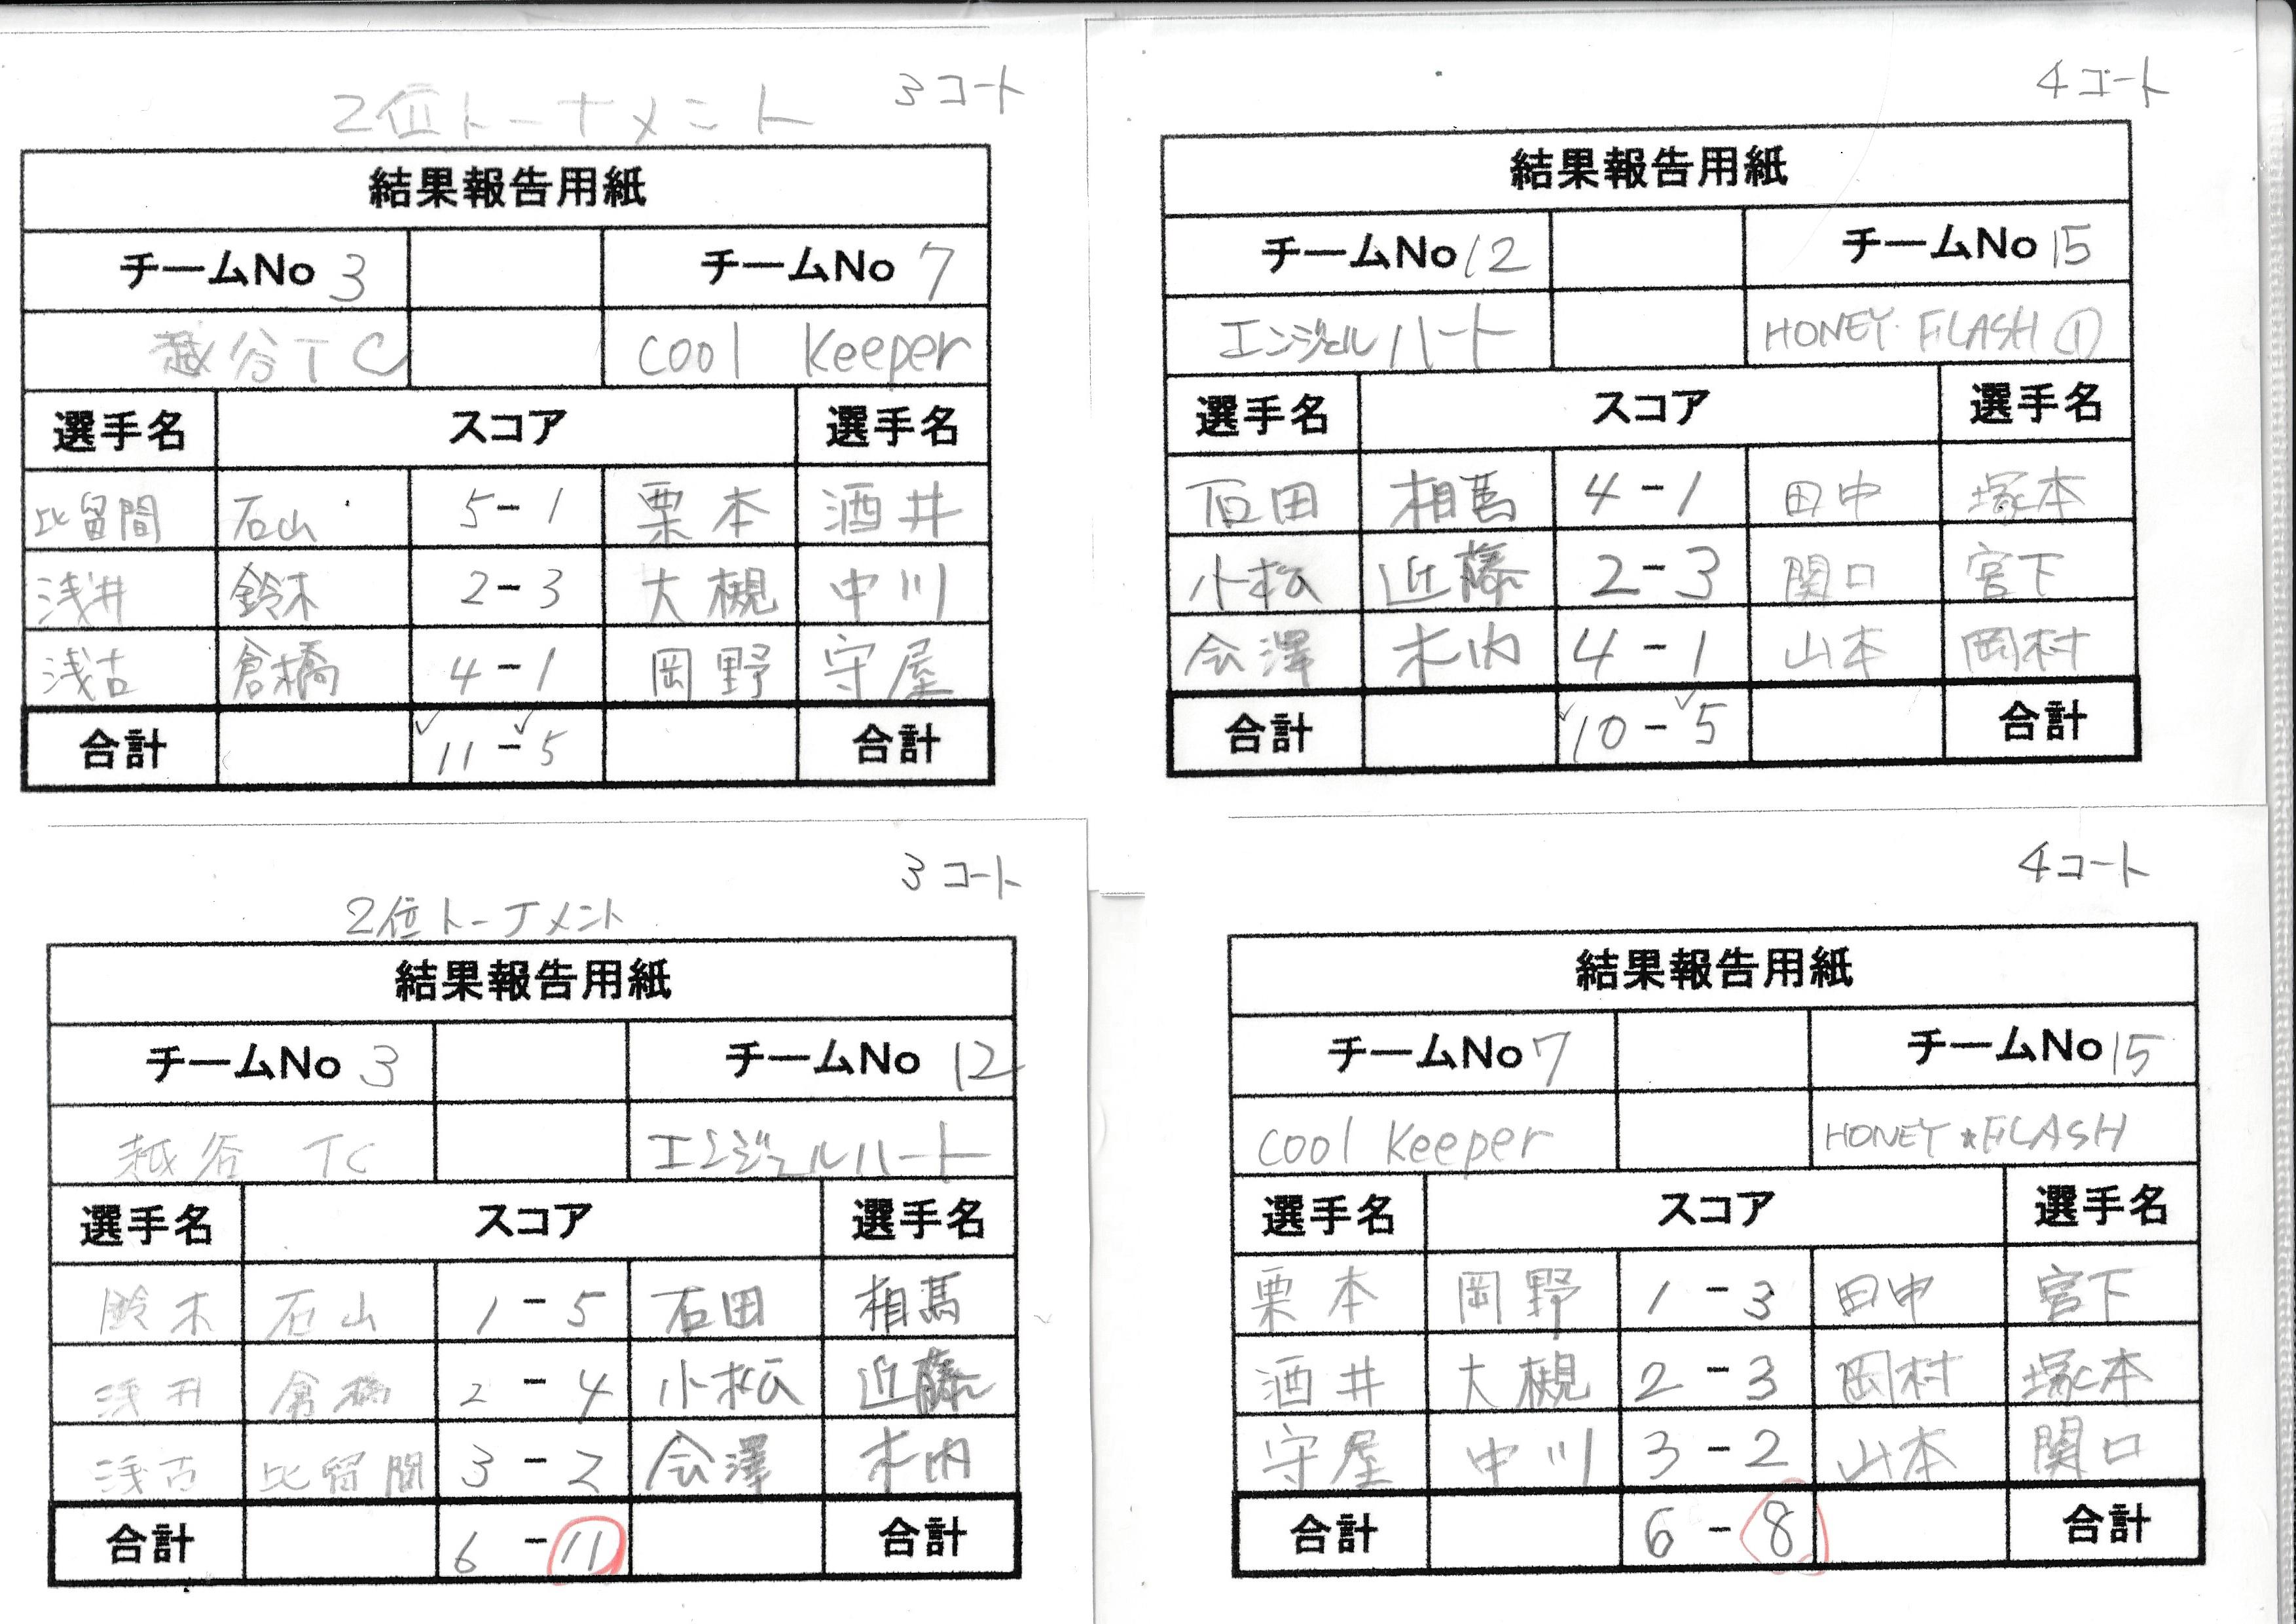 2位トーナメント 3コート
結果報告用紙
チームNo 3 チームNo 7
越谷TC cool keeper
選手名 スコア 選手名
比留間 石山 5-1 栗本 酒井
浅井 鈴木 2-3 大槻 中川
浅古 倉橋 4-1 岡野 守屋
合計 11-5 合計
4コート
結果報告用紙
チームNo 12 チームNo 15
エンジェルハート HONEY FLASH ①
選手名 スコア 選手名
石田 相馬 4-1 田中 塚本
小松 近藤 2-3 関口 宮下
会澤 木内 4-1 山本 岡村
合計 10-5 合計
3コート
2位トーナメント
結果報告用紙
チームNo 3 チームNo 12
越谷 TC エンジェルハート
選手名 スコア 選手名
鈴木 石山 1-5 石田 相馬
浅井 倉橋 2-4 小松 近藤
浅古 比留間 3-2 会澤 木内
合計 6-11 合計
4コート
結果報告用紙
チームNo 7 チームNo 15
cool keeper HONEY★FLASH
選手名 スコア 選手名
栗本 岡野 1-3 田中 宮下
酒井 大槻 2-3 岡村 塚本
守屋 中川 3-2 山本 関口
合計 6-8 合計